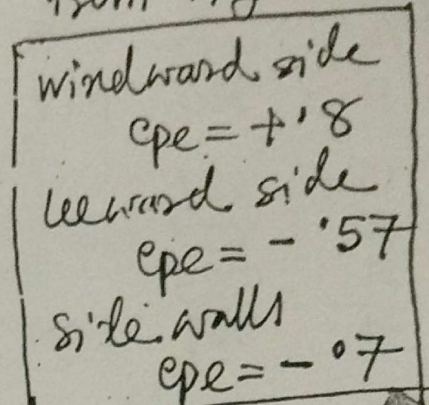 windward side
cpe = +.8
leeward side
cpe = - .57
side walls
cpe = - .7